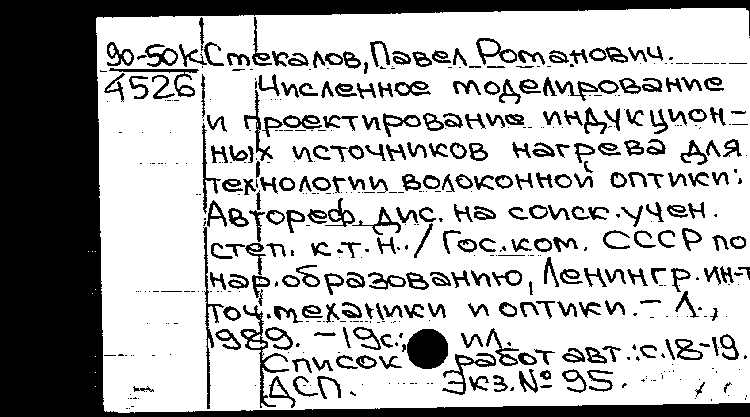 90-50К Стекалов, Павел Романович.
4526 Численное моделирование
и проектирование индукцион-
ных источников нагрева для
технологии волоконной оптики:
Автореф. дис. на соиск. учен.
степ. к.т.н./ Гос.ком. СССР по
нар.образованию, Ленингр.ин-т
точ.механики и оптики.- Л.,
1989. -19с.; ил.
Список работ авт.:с.18-19.
ДСП. Экз.№95.